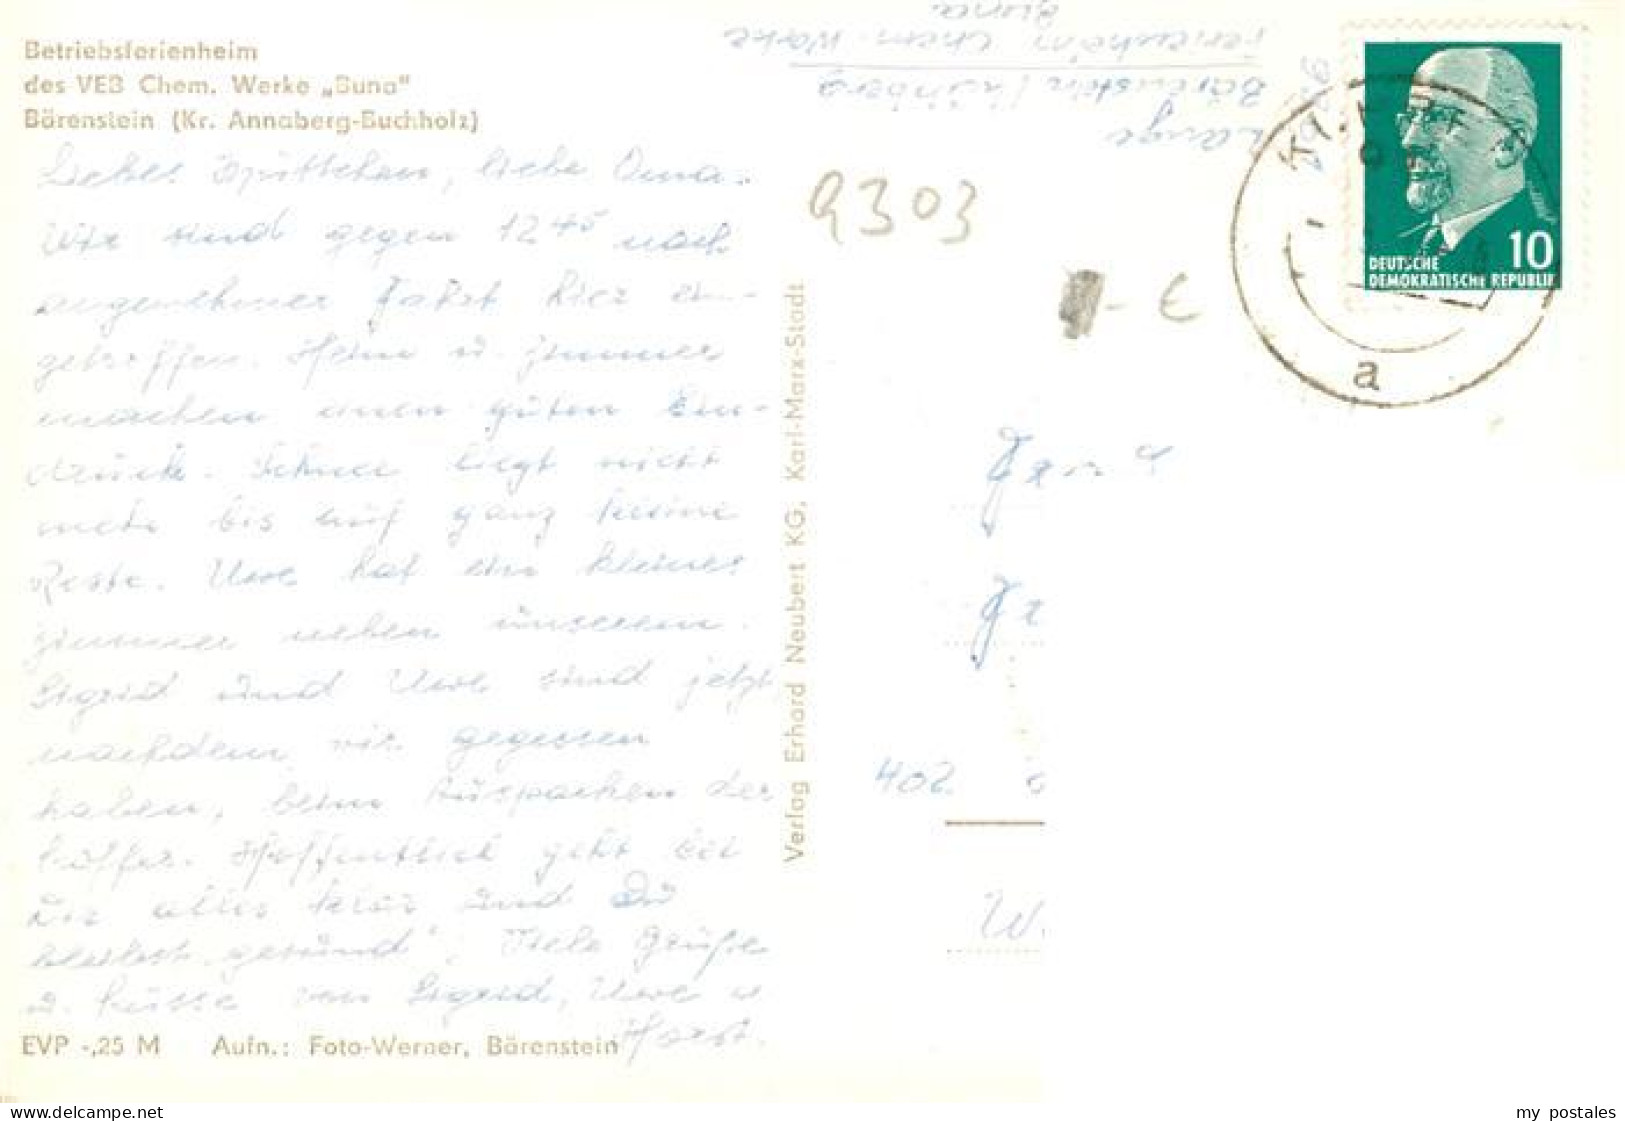 Betriebsferienheim
des VEB Chem. Werke „Buna"
Bärenstein (Kr. Annaberg-Buchholz)
Liebes Spöttchen, liebe Oma.
Wir sind gegen 12 45 nach
angenehmer Fahrt hier ein-
getroffen. Heim u. Zimmer
machen einen guten Ein-
druck. Schnee liegt nicht
mehr bis auf ganz kleine
Reste. Uwe hat ein kleines
Zimmer neben unserem.
Sigrid und Uwe sind jetzt
nachdem wir gegessen
haben, beim Auspacken der
Koffer. Hoffentlich geht bei
Dir alles klar und Du
bleibst gesund. Viele Grüße
u. Küsse von Sigrid, Uwe u
Horst.
EVP -,25 M Aufn.: Foto-Werner, Bärenstein
Verlag Erhard Neubert KG, Karl-Marx-Stadt
Lange
Bärenstein / Annaberg
Ferienheim Chem. Werke
Buna
9303
- €
10
DEUTSCHE
DEMOKRATISCHE REPUBLIK
a
402
W.
my postales
www.delcampe.net